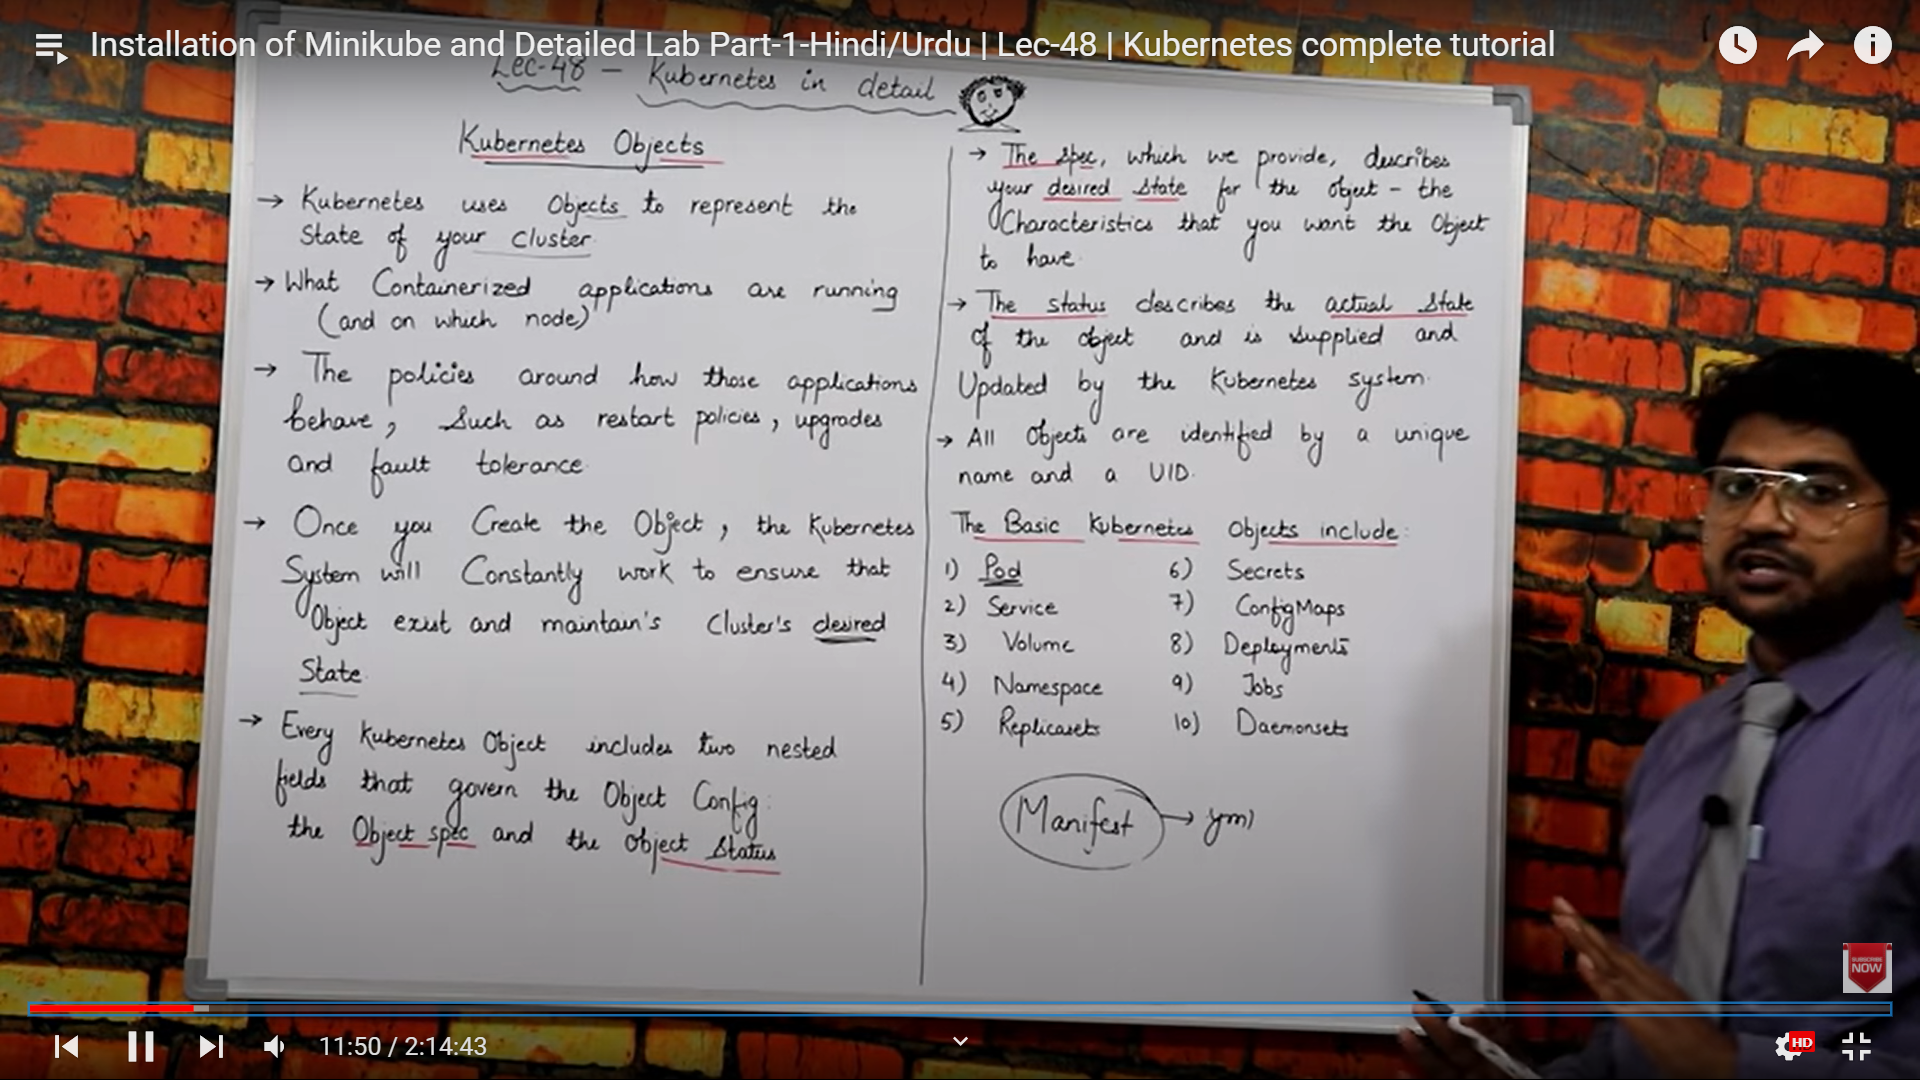 Installation of Minikube and Detailed Lab Part-1-Hindi/Urdu | Lec-48 | Kubernetes complete tutorial
Lec-48 - Kubernetes in detail
Kubernetes Objects
→ Kubernetes uses Objects to represent the
State of your cluster.
→ What Containerized applications are running
(and on which node)
→ The policies around how those applications
behave, Such as restart policies, upgrades
and fault tolerance.
→ Once you Create the Object, the Kubernetes
System will Constantly work to ensure that
Object exist and maintain's Cluster's desired
State.
→ Every Kubernetes Object includes two nested
fields that govern the Object Config:
the Object spec and the Object Status
→ The spec, which we provide, describes
your desired state for the object - the
Characteristics that you want the Object
to have.
→ The status describes the actual State
of the object and is supplied and
Updated by the Kubernetes system.
→ All Objects are identified by a unique
name and a UID.
The Basic Kubernetes Objects include:
1) Pod
2) Service
3) Volume
4) Namespace
5) Replicasets
6) Secrets
7) ConfigMaps
8) Deployments
9) Jobs
10) Daemonsets
Manifest → yml
SUBSCRIBE
NOW
11:50 / 2:14:43
HD